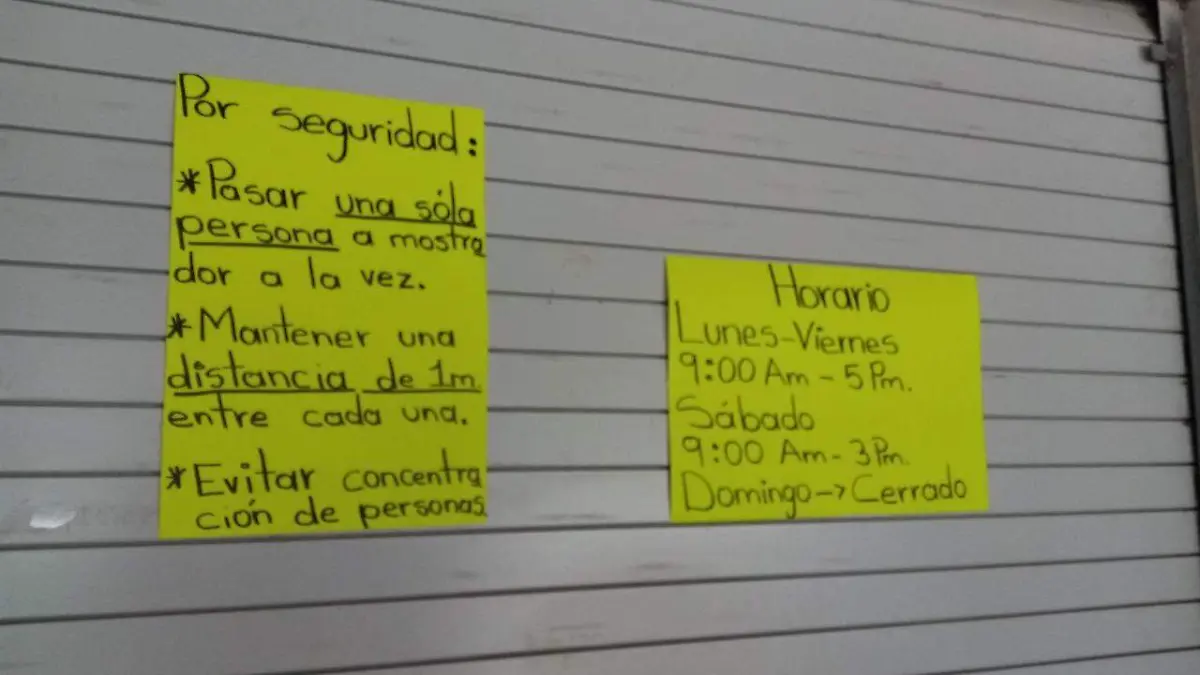 Por seguridad:
*Pasar una sóla
persona a mostra
dor a la vez.
*Mantener una
distancia de 1m
entre cada una.
*Evitar concentra
ción de personas.
Horario
Lunes-Viernes
9:00 Am - 5 Pm.
Sábado
9:00 Am - 3 Pm.
Domingo→Cerrado